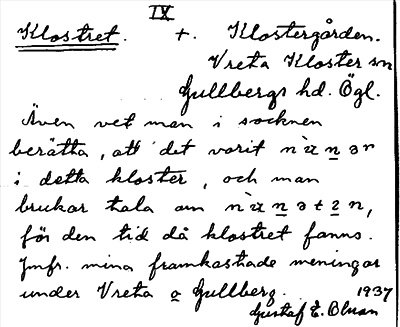 IX
Klostret. +. Klostergården.
Vreta Kloster sn
Gullbergs hd. Ögl.
Även vet man i socknen
berätta, att det varit nùnər
i detta kloster, och man
brukar tala om nùnətɜn,
för den tid då klostret fanns.
Jmfr. mina framkastade meningar
under Vreta o Gullberg. 1937
Gustaf E. Olman